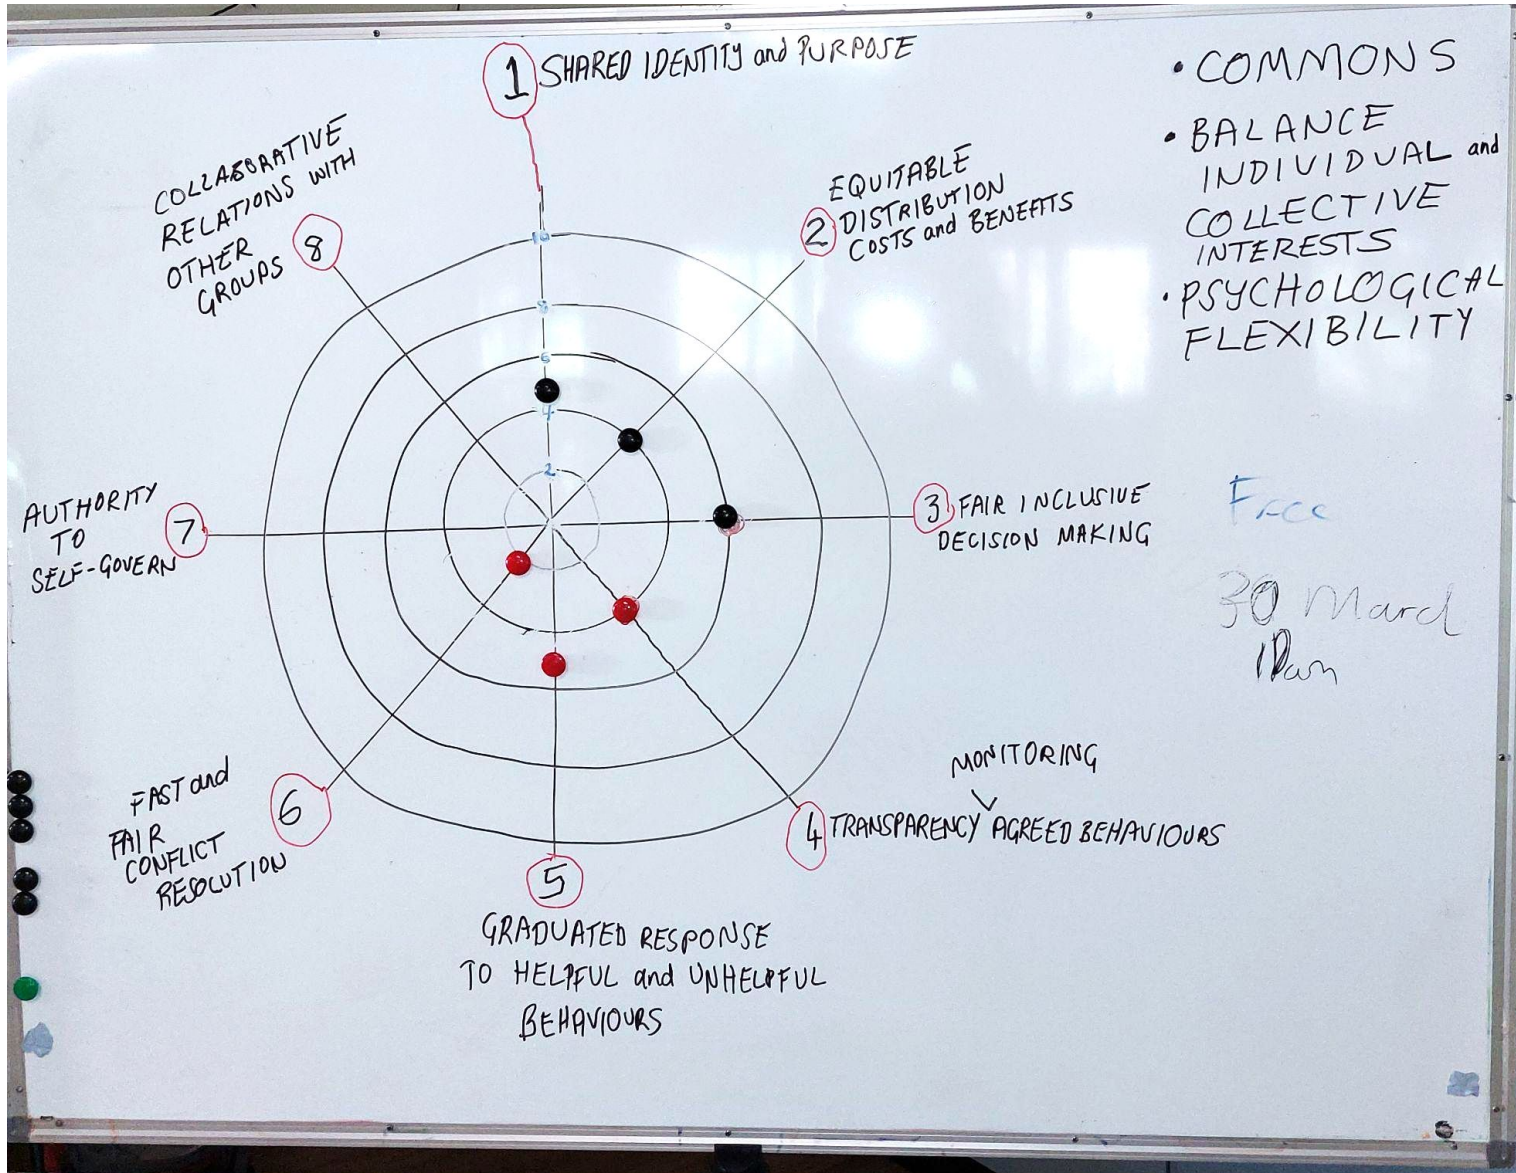 1 SHARED IDENTITY and PURPOSE
2 EQUITABLE
DISTRIBUTION
COSTS and BENEFITS
3 FAIR INCLUSIVE
DECISION MAKING
MONITORING
4 TRANSPARENCY AGREED BEHAVIOURS
5
GRADUATED RESPONSE
TO HELPFUL and UNHELPFUL
BEHAVIOURS
6
FAST and
FAIR
CONFLICT
RESOLUTION
7
AUTHORITY
TO
SELF-GOVERN
8
COLLABORATIVE
RELATIONS WITH
OTHER
GROUPS
10
8
6
4
2
• COMMONS
• BALANCE
INDIVIDUAL and
COLLECTIVE
INTERESTS
• PSYCHOLOGICAL
FLEXIBILITY
30